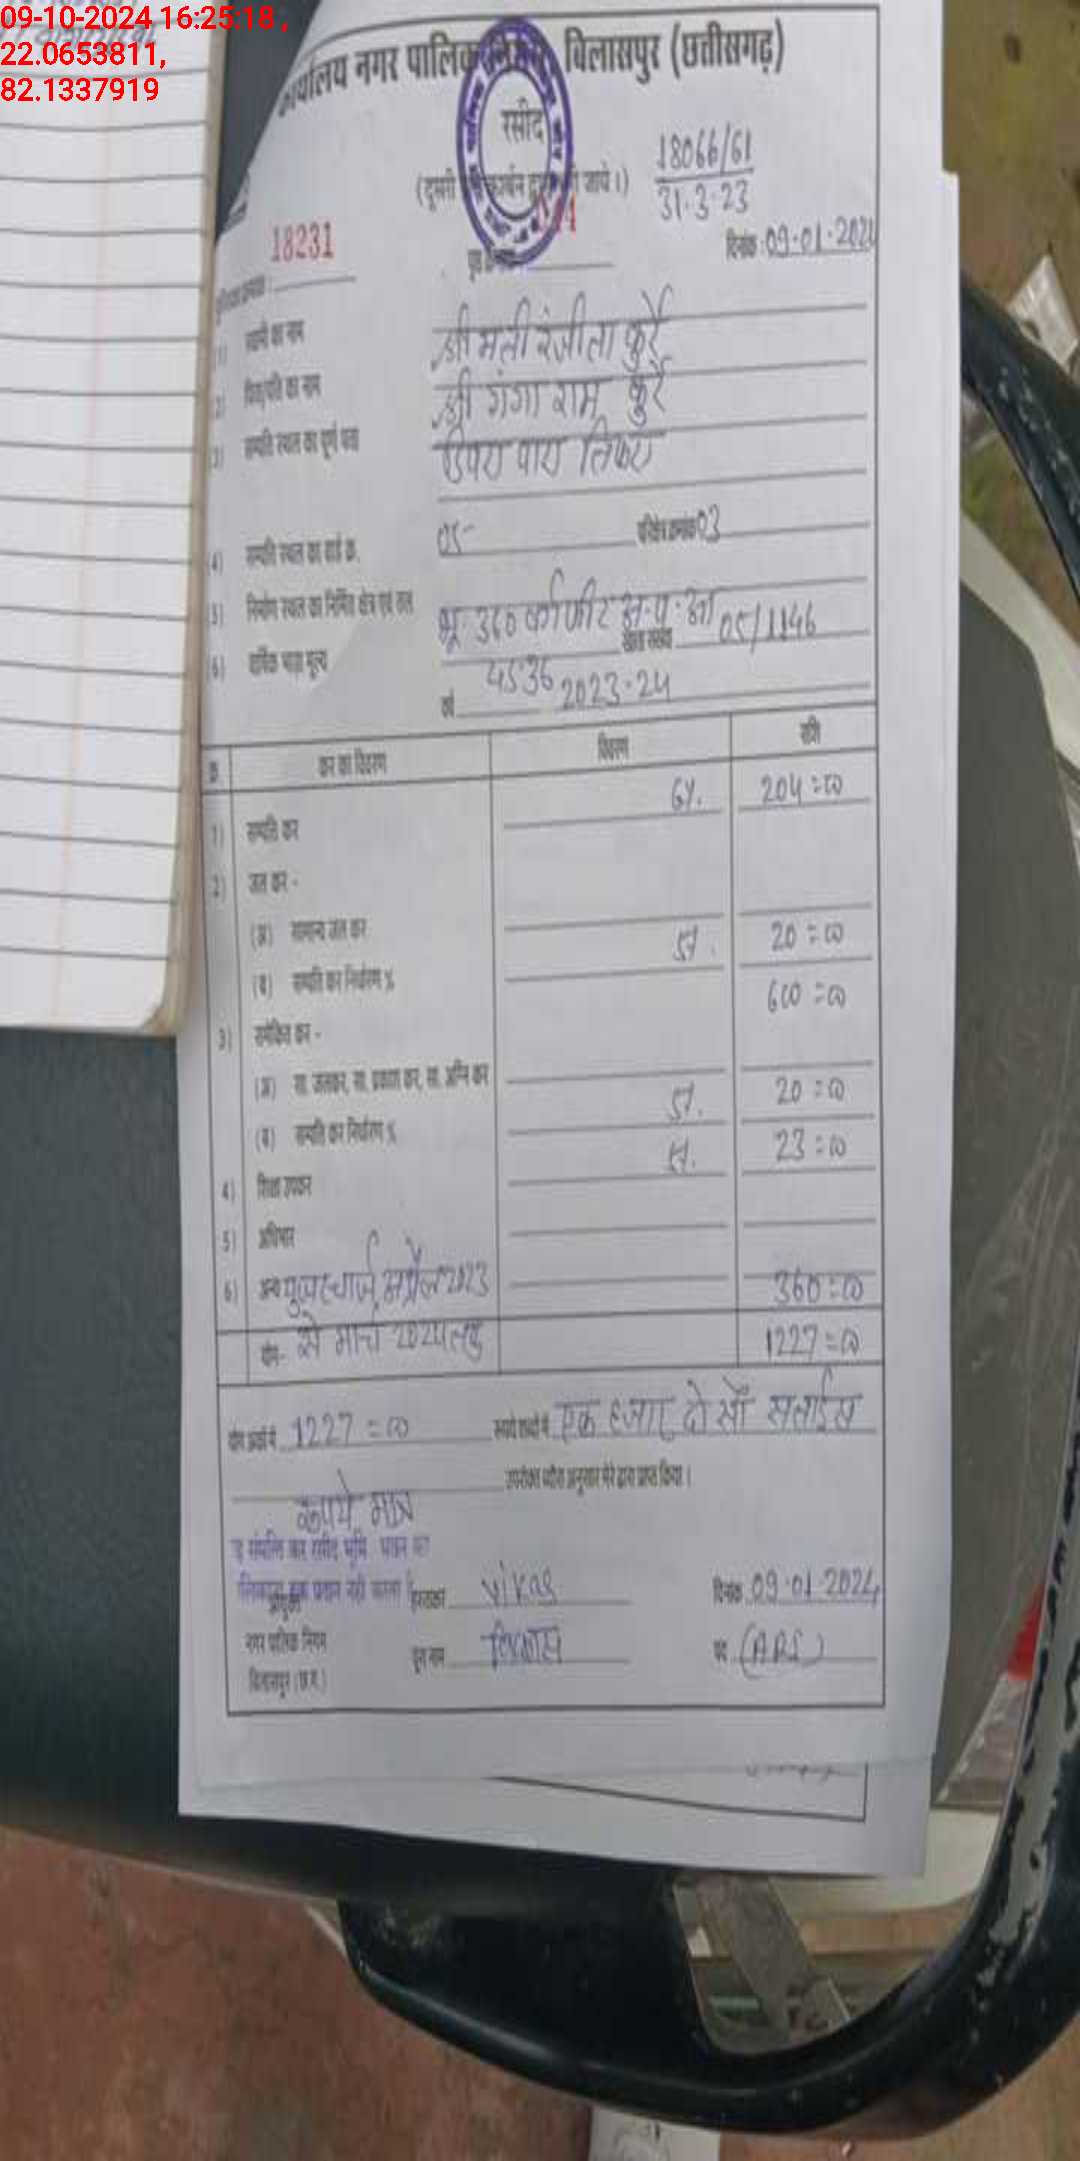 09-10-2024 16:25:18 ,
22.0653811,
82.1337919
कार्यालय नगर पालिक निगम, बिलासपुर (छत्तीसगढ़)
रसीद
18066/61
31.3.23
18231
दिनांक : 09.01.2024
1) स्वामी का नाम श्रीमती रंजीता कुर्रे
2) पिता/पति का नाम श्री गंगा राम कुर्रे
3) सम्पत्ति स्थल का पूर्ण पता डिपरा पारा तिफरा
4) सम्पत्ति स्थल का वार्ड क्र. 05 परिक्षेत्र क्रमांक 03
5) निर्माण स्थल का निर्मित क्षेत्र एवं तल भू. 360 वर्ग फीट
6) वार्षिक भाड़ा मूल्य 4536 खाता संख्या 05/1146
वर्ष 2023-24
क्र कर का विवरण विवरण राशि
1) सम्पत्ति कर 6%. 204=00
2) जल कर -
(अ) सामान्य जल कर
(ब) सम्पत्ति कर निर्धारण % 20=00
600=00
3) समेकित कर -
(अ) सा. जलकर, सा. प्रकाश कर, सा. अग्नि कर
(ब) सम्पत्ति कर निर्धारण % 20=00
4) शिक्षा उपकर 23=00
5) अधिभार
6) अन्य यूजर चार्ज, अप्रैल 2023 360=00
योग- से मार्च 2024 तक 1227=00
योग अंकों में 1227=00 रूपये शब्दों में एक हजार दो सौ सत्ताईस
उपरोक्त ब्यौरा अनुसार मेरे द्वारा प्राप्त किया।
रूपये मात्र
संपत्ति कर रसीद भूमि भवन का
हक प्रदान नहीं करता
आयुक्त हस्ताक्षर Vikas दिनांक 09.01.2024
नगर पालिक निगम पूरा नाम विकास पद (ARI)
बिलासपुर (छ.ग.)